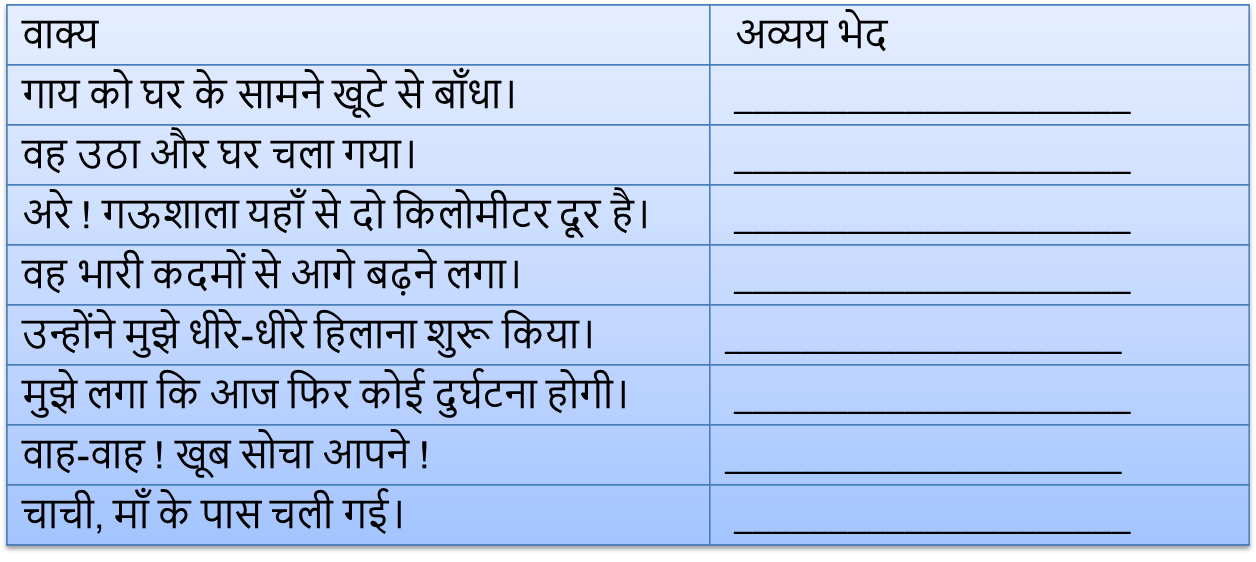 वाक्य अव्यय भेद
गाय को घर के सामने खूटे से बाँधा। _____________________
वह उठा और घर चला गया। _____________________
अरे ! गऊशाला यहाँ से दो किलोमीटर दूर है। _____________________
वह भारी कदमों से आगे बढ़ने लगा। _____________________
उन्होंने मुझे धीरे-धीरे हिलाना शुरू किया। _____________________
मुझे लगा कि आज फिर कोई दुर्घटना होगी। _____________________
वाह-वाह ! खूब सोचा आपने ! _____________________
चाची, माँ के पास चली गई। _____________________